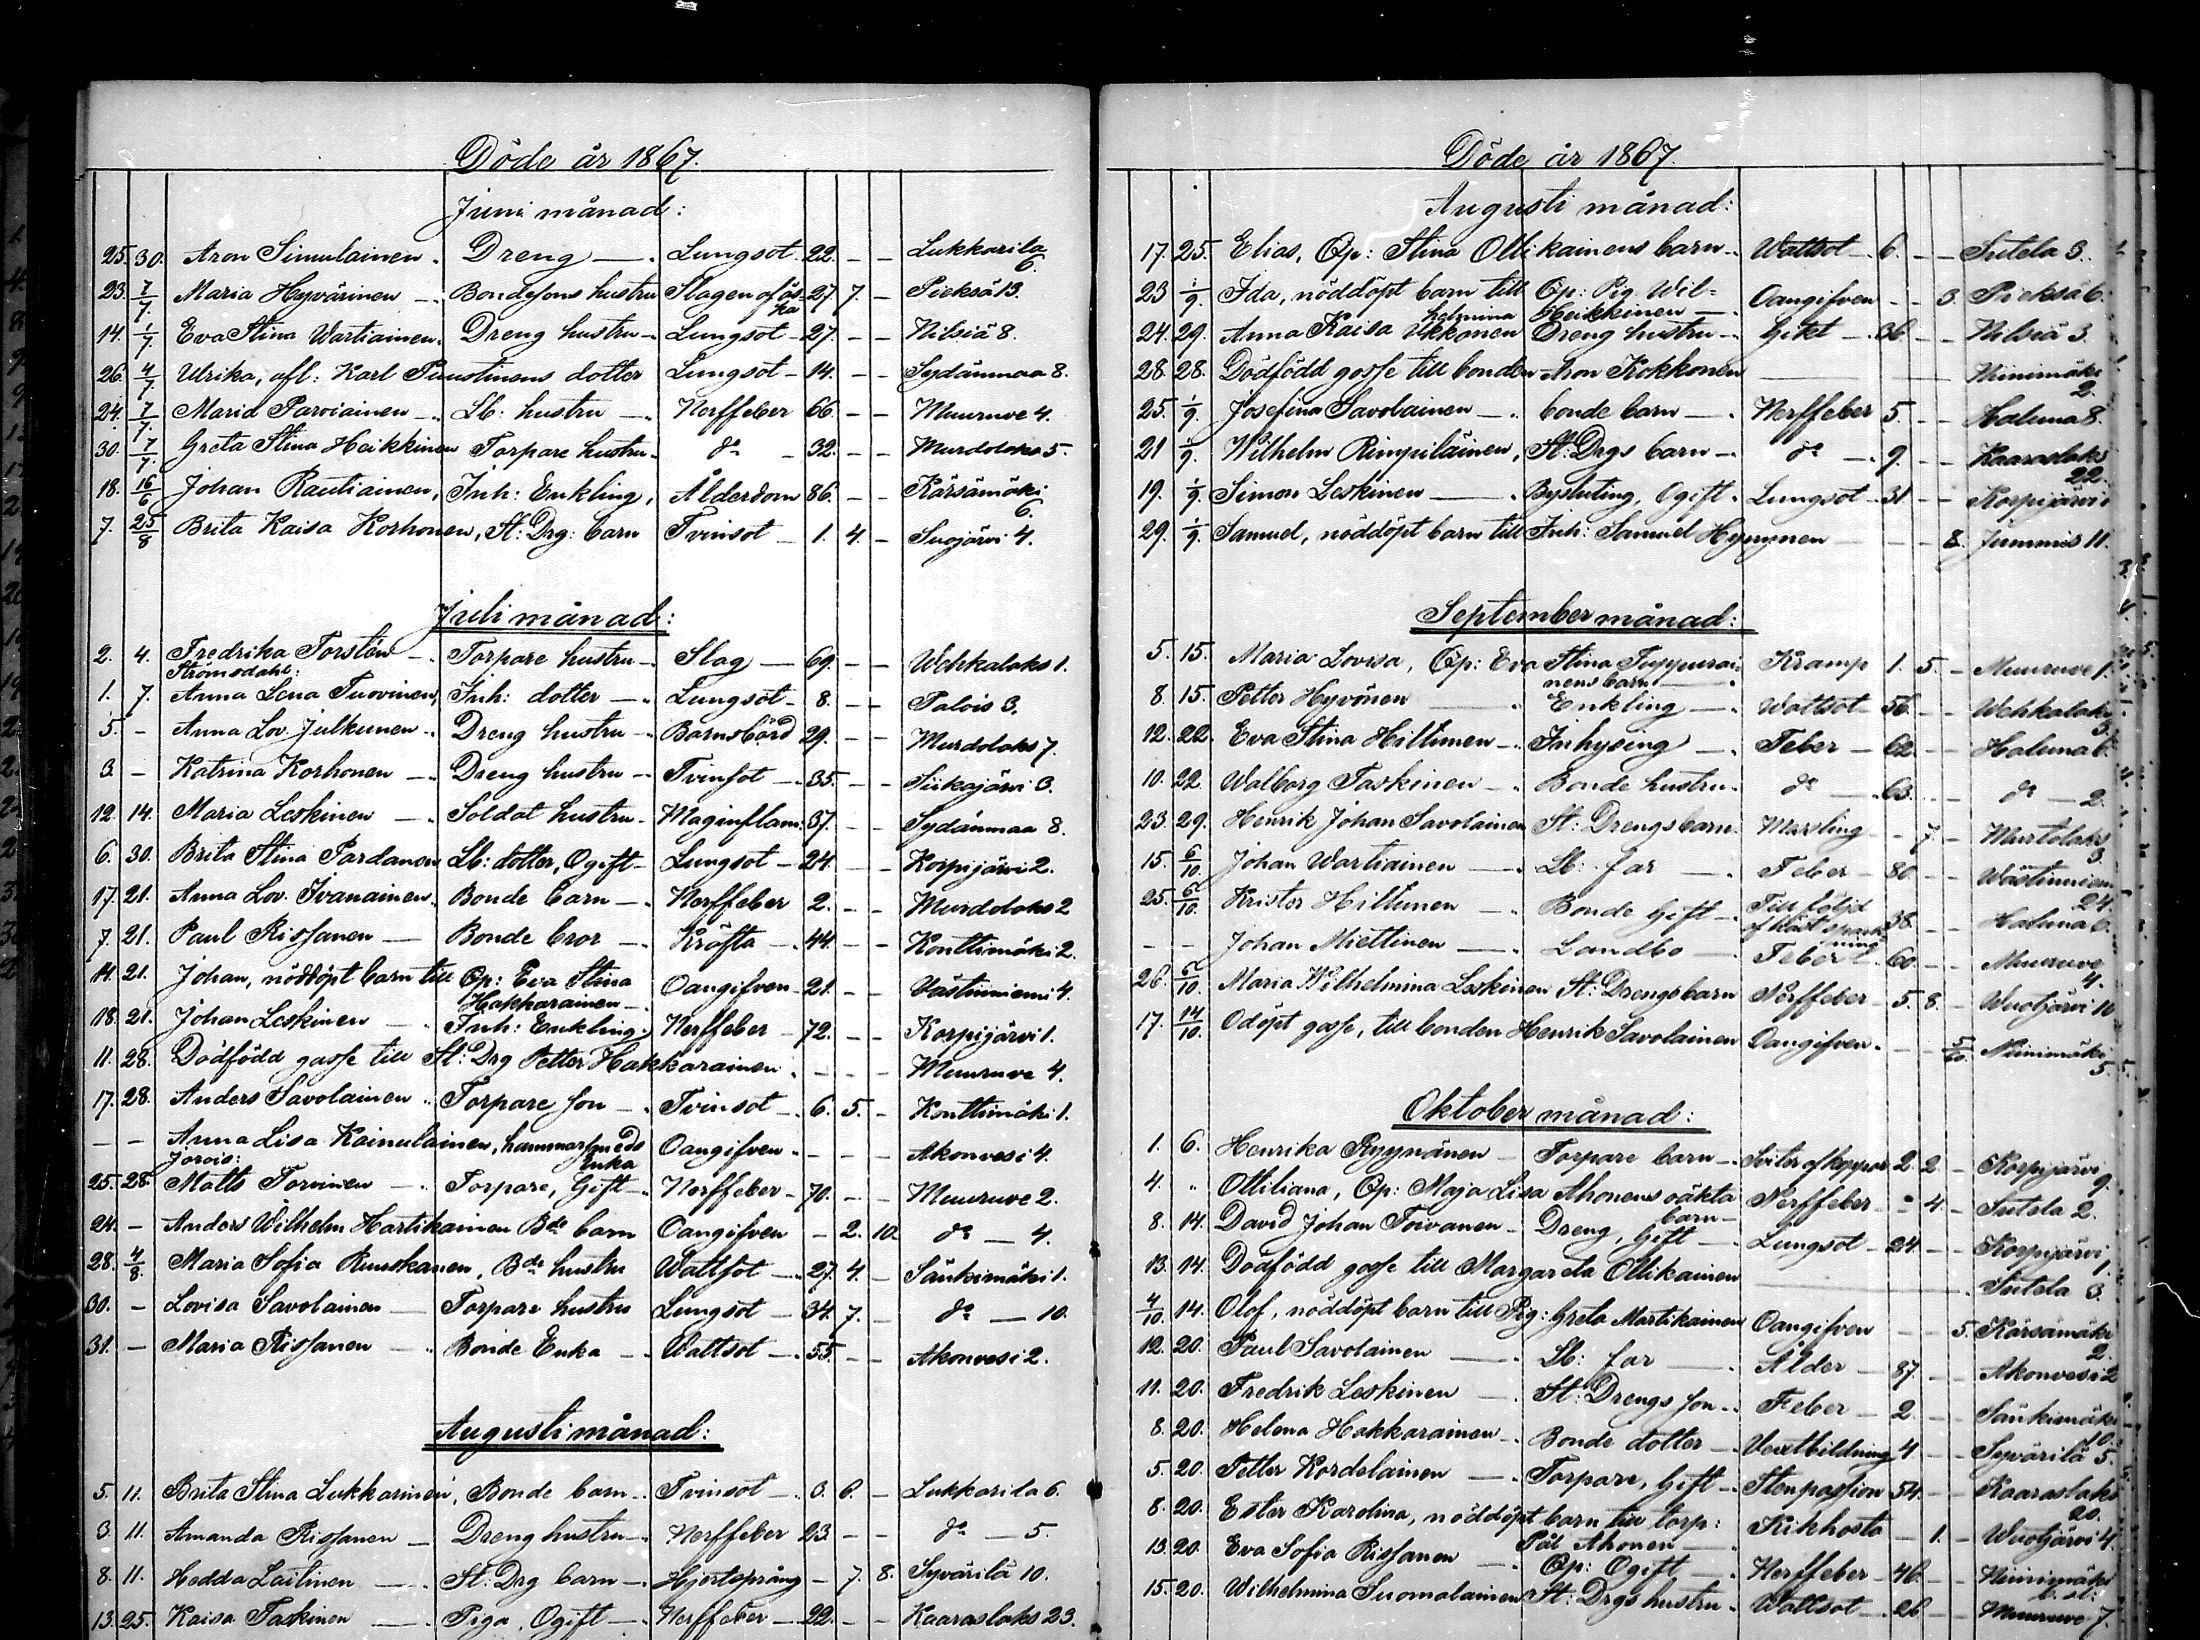 Döde år 1867.
Juni månad:
25. 30. Aron Simulainen. Dreng Lungsot 22. - - Lukkarila 6.
23. 7/7. Maria Hyvärinen Bondesons hustru Slagen af ås- ka 27 7. - Pieksä 13.
14. 1/7 Eva Stina Wartiainen. Dreng hustru Lungsot 27. - - Nilsiä 8.
26. 4/7. Ulrika, afl: Karl dotter Lungsot 14. - - Sydänmaa 8.
24. 7/7. Maria Parviainen Lb: hustru Nerffeber 66. - - Muuruve 4.
30. 7/7. Greta Stina Heikkinen Torpare hustru do 32. - - Murdolaks 5.
18. 16/6 Johan Rautiainen, Inh: Enkling, Ålderdom 86. - - Kärsämäki 6.
7. 25/8 Brita Kaisa Korhonen, St: Drg: barn Tvinsot 1. 4. - Suojärvi 4.
Juli månad:
2. 4. Fredrika Torstén Torpare hustru Slag 69. - - Wehkalaks 1.
Strömsdahl:
1. 7. Anna Lena Tuovinen, Inh: dotter Lungsot 8. - - Palois 3.
5. - Anna Lov. Julkunen Dreng hustru Barnsbörd 29. - - Murdolaks 7.
3. - Katrina Korhonen Dreng hustru Tvinsot 35. - - Siikajärvi 3.
12. 14. Maria Leskinen Soldat hustru Maginflam: 37. - - Sydänmaa 8.
6. 30. Brita Stina Pardanen Lb: dotter, Ogift Lungsot 24. - - Korpijärvi 2.
17. 21. Anna Lov. Ivanainen. Bonde barn Nerffeber 2. - - Murdolaks 2
7. 21. Paul Rissanen Bonde bror Kräfta 44. - - Konttimäki 2.
14. 21. Johan, nöddöpt barn till Op: Eva Stina Hakkarainen Oangifven 21. - - Västinniemi 4.
18. 21. Johan Leskinen Inh: Enkling. Nerffeber 72. - - Korpijärvi 1.
11. 28. Dödfödd gosse till St: Drg Petter Hakkarainen. - - - Muuruve 4.
17. 28. Anders Savolainen Torpare son Tvinsot 6. 5. - Konttimäki 1.
- - Anna Lisa Kainulainen, hammarsmeds Enka Oangifven. - - - Akonvesi 4.
Jorois:
25. 28. Matts Torvinen Torpare, Gift Nerffeber 70. - - Muuruve 2.
24. - Anders Wilhelm Hartikainen Bde barn Oangifven - 2. 10. do 4.
28. 4/8. Maria Sofia Ruuskanen, Bde hustru Wattsot 27. 4. - Sänkimäki 1.
30. - Lovisa Savolainen Torpare hustru Lungsot 34. 7. - do 10.
31. - Maria Rissanen Bonde Enka Wattsot 55. - - Akonvesi 2.
Augusti månad:
5. 11. Brita Stina Lukkarinen, Bonde barn Tvinsot 3. 6. - Lukkarila 6.
3. 11. Amanda Rissanen Dreng hustru Nerffeber 23. - - do 5.
8. 11. Hedda Laitinen St: Drg barn Hjertsprång - 7. 8. Syvärilä 10.
13. 25. Kaisa Taskinen Piga, Ogift Nerffeber 22. - - Kaaraslaks 23.
Döde år 1867.
Augusti månad:
17. 25. Elias, Op: Stina Ollikainens barn Wattsot 6. - - Sutela 3.
23 1/9. Ida, nöddöpt barn till Op: Pig. Wil= helmina Heikkinen Oangifven - - 3. Pieksä 6.
24. 29. Anna Kaisa Ukkonen Dreng hustru Gikt 36 - - Nilsiä 3.
28. 28. Dödfödd gosse till bonden Aron Kokkonen Niinimäki 2.
25. 1/9. Josefina Savolainen bonde barn Nerffeber 5. - - Haluna 8.
21 1/9. Wilhelm Rimpiläinen, St: Drgs barn do 9. - - Kaaraslaks 22.
19. 1/9. Simon Leskinen Bysluting, Ogift Lungsot 31. - - Korpijärvi
29. 1/9. Samuel, nöddöpt barn till Inh: Samuel Hyvynen - - 8. Juminis 11.
September månad:
5. 15. Maria Lovisa, Op: Eva Stina Toppurai- nens barn Kramp 1. 5. - Muuruve 1.
8. 15. Petter Hyvönen Enkling Wattsot 56. - - Wehkalaks 3.
12. 22. Eva Stina Hiltunen Inhysing Feber 62. - - Haluna 6.
10. 22. Walborg Taskinen Bonde hustru. do 63. - - do 2.
23. 29. Henrik Johan Savolainen St: Drengs barn. Messling - 7. - Murtolaks 3.
15. 6/10. Johan Wartiainen Lb: far Feber 80. - - Wästinniemi 24.
25. 6/10. Krister Hiltunen Bonde Gift Till följd af häst spark- ning 38. - - Haluna 6.
- - Johan Miettinen Landbo Feber 60. - - Muuruve 4.
26. 6/10. Maria Wilhelmina Leskinen St: Drengs barn Nerffeber 5. 8. - Wuotjärvi 10
17. 14/10. Odöpt gosse, till bonden Henrik Savolainen Oangifven. - - Niinimäki 5.
Oktober månad:
1. 6. Henrika Ryynänen Torpare barn Sviter af koppor 2. 2. - Korpijärvi 9.
4. " Ottiliana, Op: Maja Lisa Ahonens oäkta barn Nerffeber - 4. - Sutela 2.
8. 14. David Johan Toivanen Dreng, Gift Lungsot 24. - - Korpijärvi 1.
13. 14. Dödfödd gosse till Margareta Ollikainen Sutela 3.
4/10 14. Olof, nöddöpt barn till Pig: Greta Martikainen Oangifven - - 5. Kärsämäki 2.
12. 20. Paul Savolainen Lb: far Ålder 87. - - Akonvesi 2
11. 20. Fredrik Leskinen St: Drengs son Feber 2. - - Sänkimäki 10.
8. 20. Helena Hakkarainen Bonde dotter Vextbildning 4 - - Syvärilä 5.
5. 20. Petter Kordelainen Torpare, Gift Stenpassion 54. - - Kaaraslaks 20.
8. 20. Ester Karolina, nöddöpt barn till torp: Pål Ahonen Kikhosta - 1. - Wuotjärvi 4.
13. 20. Eva Sofia Rissanen Op: Ogift Nerffeber 46. - - Niinimäki
15. 20. Wilhelmina Suomalainen St: Drgs hustru Wattsot 26 - - Muuruve 7.